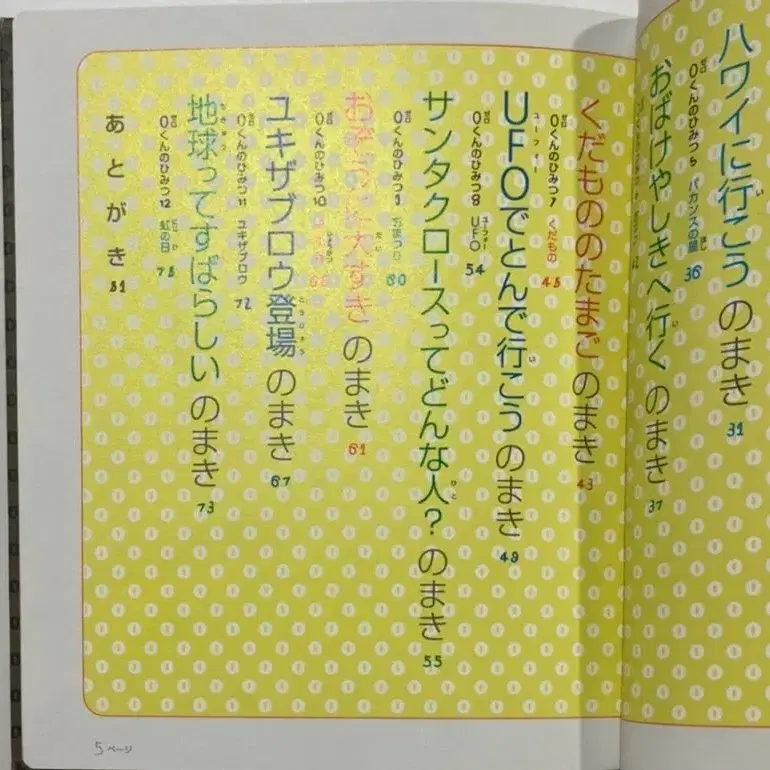 ハワイに行こうのまき 31
0くんのひみつ5 バカンスの星 36
おばけやしきへ行くのまき 37
くだもののたまごのまき 43
0くんのひみつ7 くだもの 48
UFOでとんで行こうのまき 49
0くんのひみつ8 UFO 54
サンタクロースってどんな人?のまき 55
0くんのひみつ9 おまつり 60
おぞうに大すきのまき 61
0くんのひみつ10
ユキザブロウ登場のまき 67
0くんのひみつ11 ユキザブロウ 72
地球ってすばらしいのまき 73
0くんのひみつ12 虹の日 78
あとがき 81
5ページ